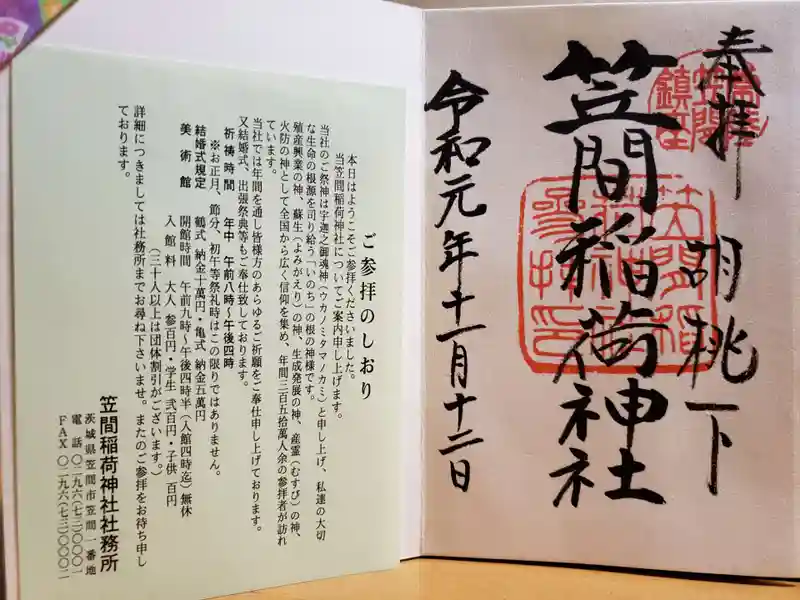 奉拝 胡桃下
笠間稲荷神社
令和元年十一月十二日
ご参拝のしおり
本日はようこそご参拝くださいました。
当笠間稲荷神社についてご案内申し上げます。
当社のご祭神は宇迦之御魂神（ウカノミタマノカミ）と申し上げ、私達の大切
な生命の根源を司り給う「いのち」の根の神様です。
殖産興業の神、蘇生（よみがえり）の神、生成発展の神、産霊（むすび）の神、
火防の神として全国から広く信仰を集め、年間三百五拾萬人余の参拝者が訪れ
ています。
当社では年間を通し皆様方のあらゆるご祈願をご奉仕申し上げております。
又結婚式、出張祭典等もご奉仕致しております。
祈祷時間 年中 午前八時～午後四時
※お正月、節分、初午等祭礼時はこの限りではありません。
結婚式規定 鶴式 納金十萬円・亀式 納金五萬円
美術館 開館時間 午前九時～午後四時半（入館四時迄）無休
入館料 大人 参百円・学生 弐百円・子供 百円
（三十人以上は団体割引がございます。）
詳細につきましては社務所までお尋ね下さいませ。またのご参拝をお待ち申し
ております。
笠間稲荷神社社務所
茨城県笠間市笠間一番地
電話 〇二九六（七三）〇〇〇一
FAX 〇二九六（七三）〇〇〇二